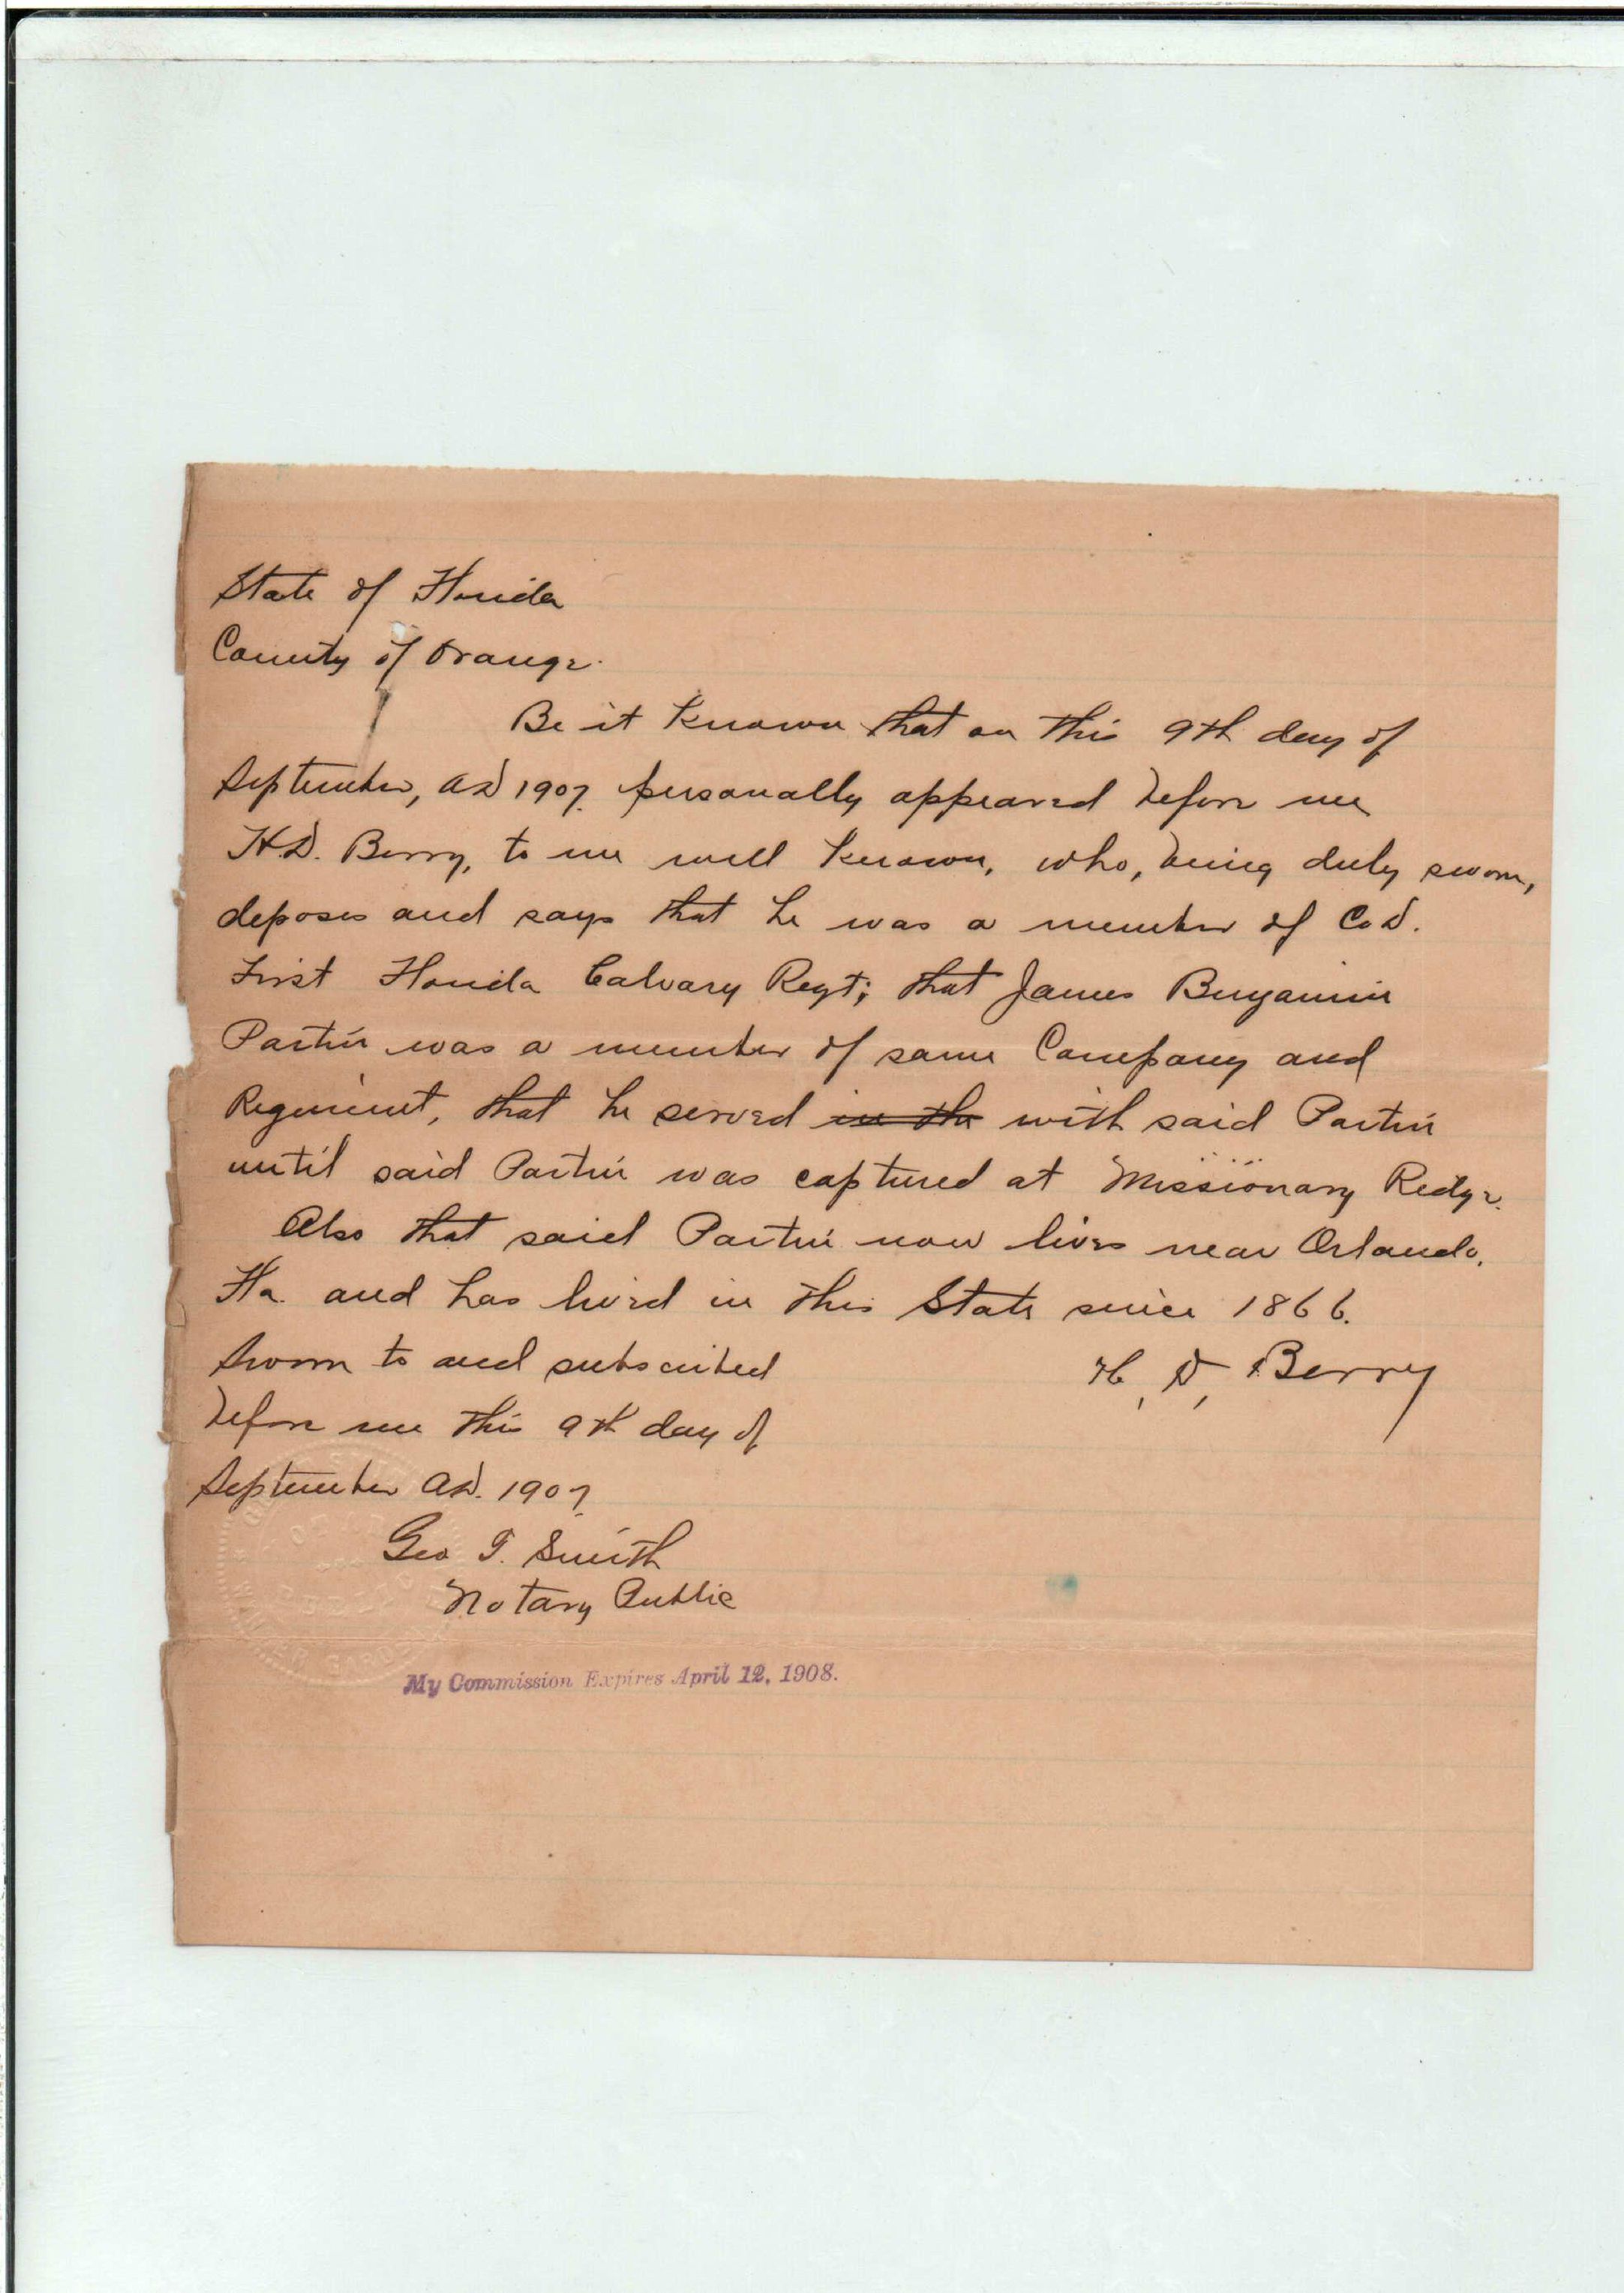 State of Florida
County of Orange.
Be it known that on this 9th day of
September, AD 1907. personally appeared before me
H.D. Berry, to me well known, who, being duly sworn,
deposes and says that he was a member of Co D.
First Florida Calvary Regt; that James Benjamin
Partin was a member of same Company and
Regiment, that he served in the with said Partin
until said Partin was captured at Missionary Redge.
Also that said Partin now lives near Orlando,
Fla. and has lived in this State since 1866.
Sworn to and subscribed
H. D. Berry
before me this 9th day of
September AD. 1907
Geo T. Smith
Notary Public
My Commission Expires April 12, 1908.